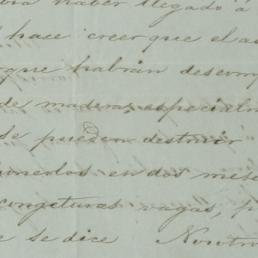 haber llegado á
hace creer que el a
que habrán descom
de maderas especialm
se pueden destruir
ponerlos en dos mese
congeturas vagas, p
e se dice Nosotro